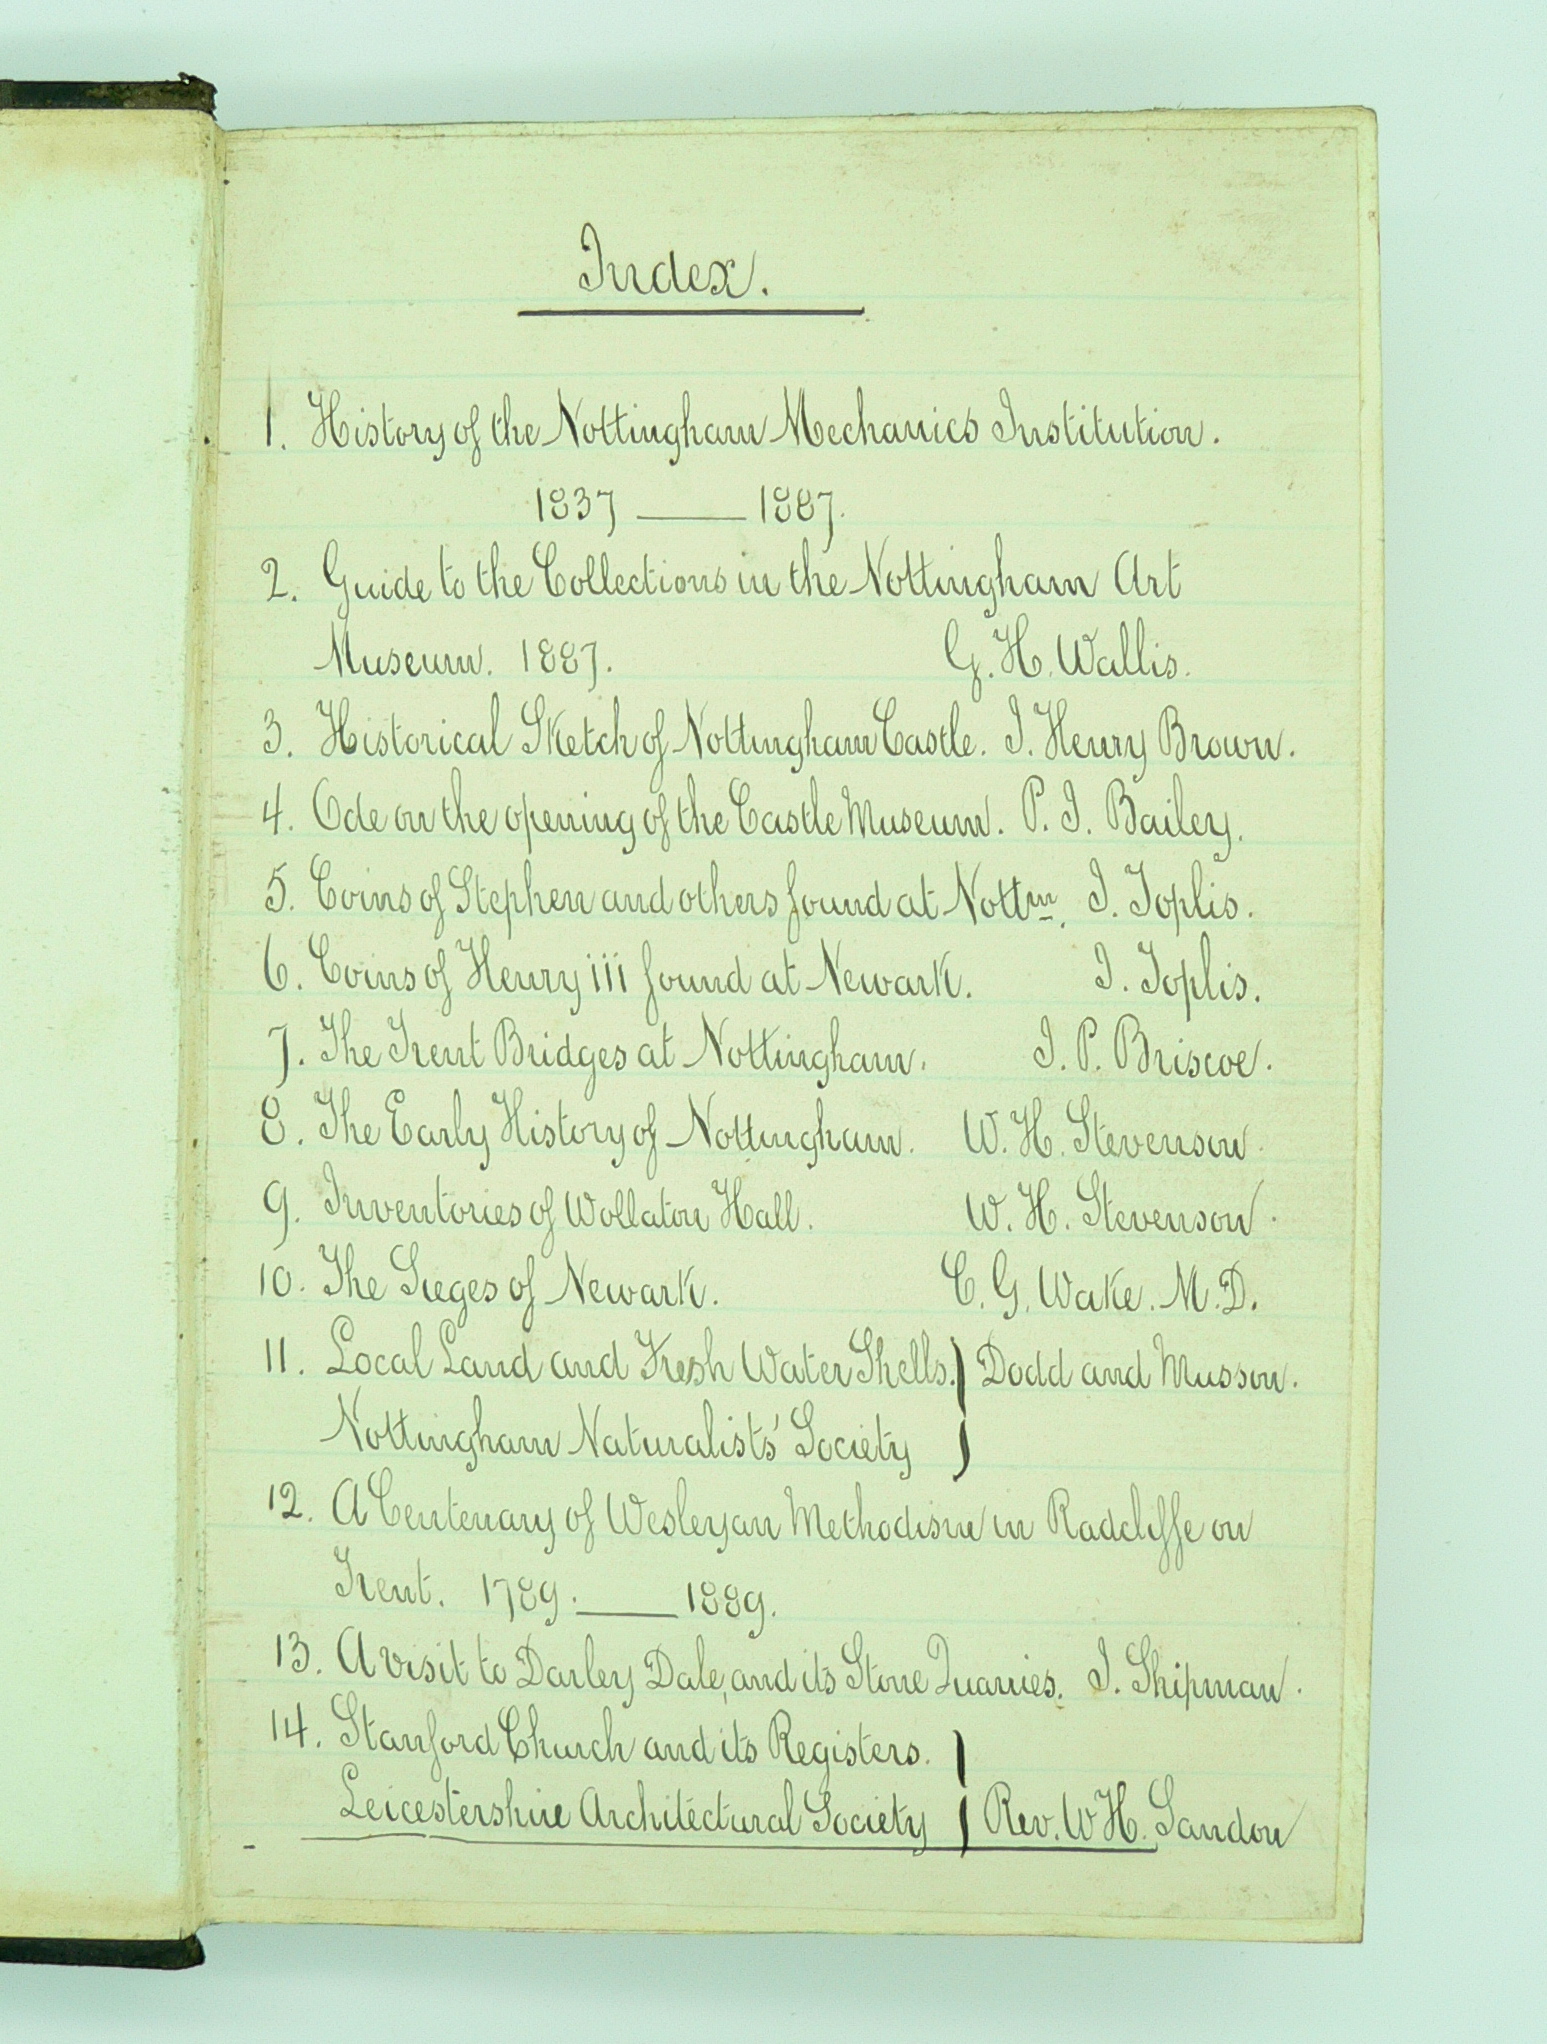 Index.
1. History of the Nottingham Mechanics Institution.
1837 — 1887.
2. Guide to the Collections in the Nottingham Art
Museum. 1887. G. H. Wallis.
3. Historical Sketch of Nottingham Castle. J. Henry Brown.
4. Ode on the opening of the Castle Museum. P. J. Bailey.
5. Coins of Stephen and others found at Nottm. J. Toplis.
6. Coins of Henry iii found at Newark. J. Toplis.
7. The Trent Bridges at Nottingham. J. P. Briscoe.
8. The Early History of Nottingham. W. H. Stevenson.
9. Inventories of Wollaton Hall. W. H. Stevenson.
10. The Sieges of Newark. C. G. Wake. M.D.
11. Local Land and Fresh Water Shells. } Dodd and Musson.
Nottingham Naturalists' Society
12. A Centenary of Wesleyan Methodism in Radcliffe on
Trent. 1789. — 1889.
13. A visit to Darley Dale, and its Stone Quarries. J. Shipman.
14. Stanford Church and its Registers. }
Leicestershire Architectural Society Rev. W H. Sandon